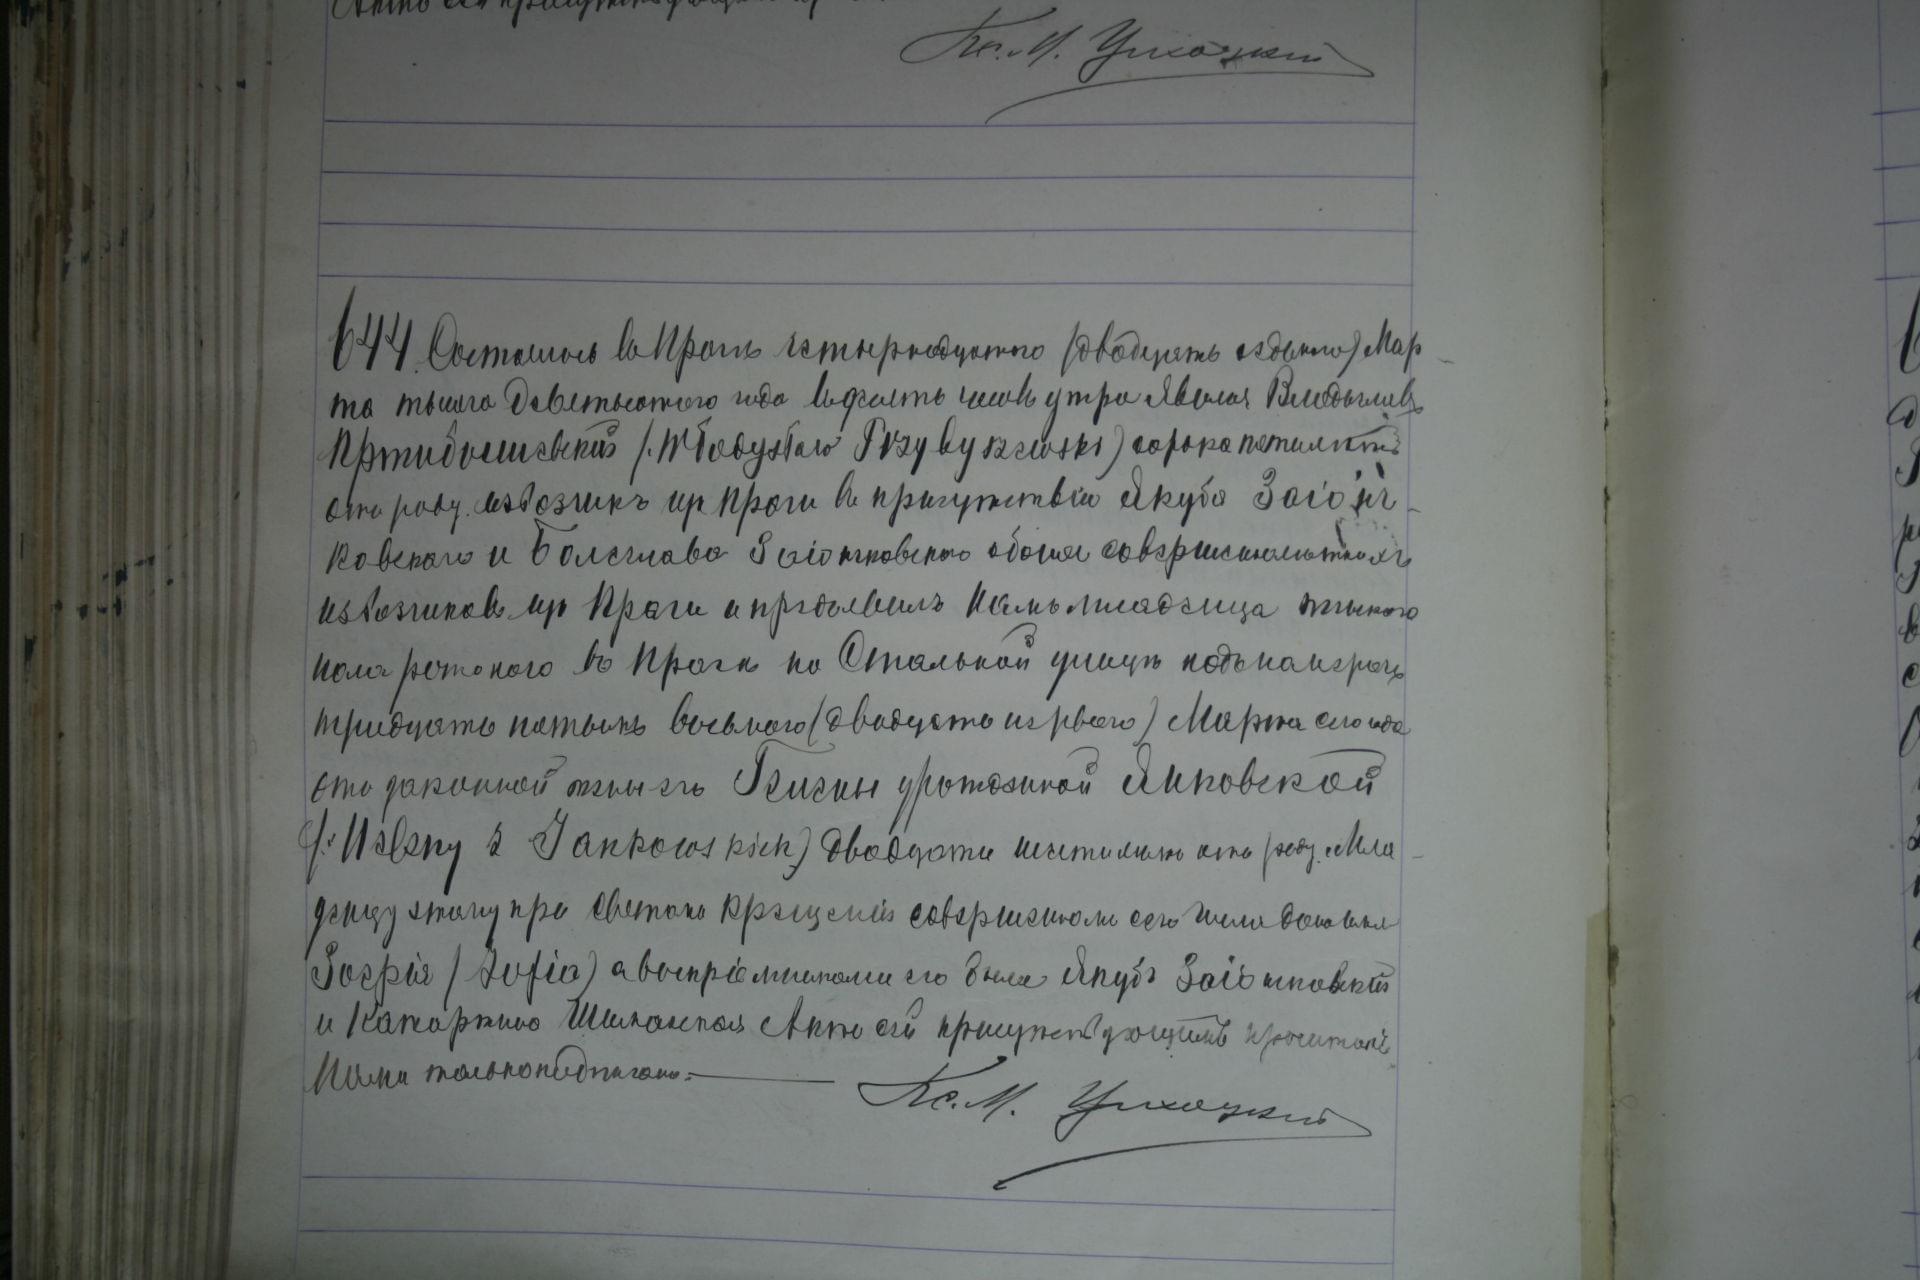 Акто сей присутствующимъ
Кс. М. Цихоцкій
644. Состоялось въ Прагѣ четырнадцатого (двадцать седьмого) Мар
та тысяча девятьсотого года въ часовъ утра Явился Владыславъ
Пржибышевскій (Władysław Przybyszewski) сорока пяти лѣтъ
отъ роду извозчикъ изъ Праги въ присутствіи Якуба Заіонч
ковскаго и Болеслава Заіончковскаго обоихъ совершеннолѣтнихъ
извозчиковъ изъ Праги и предъявилъ Намъ младенца женского
пола рожденного въ Прагѣ по Стальной улицѣ подъ намеромъ
тридцать пятымъ восьмого (двадцать первого) Марта сего года
отъ законной жены его урожденной Янковской
Jankowskich) двадцати шести лѣтъ отъ роду. Мла
денцу этому при Святомъ Крещеніи совершенномъ сего числа дано имя
Зофія (Zofia) а воспріемниками его были Якубъ Заіончковскій
и Катаржина Акто сей присутствующимъ прочитанъ
Нами только подписанъ.
Кс. М. Цихоцкій